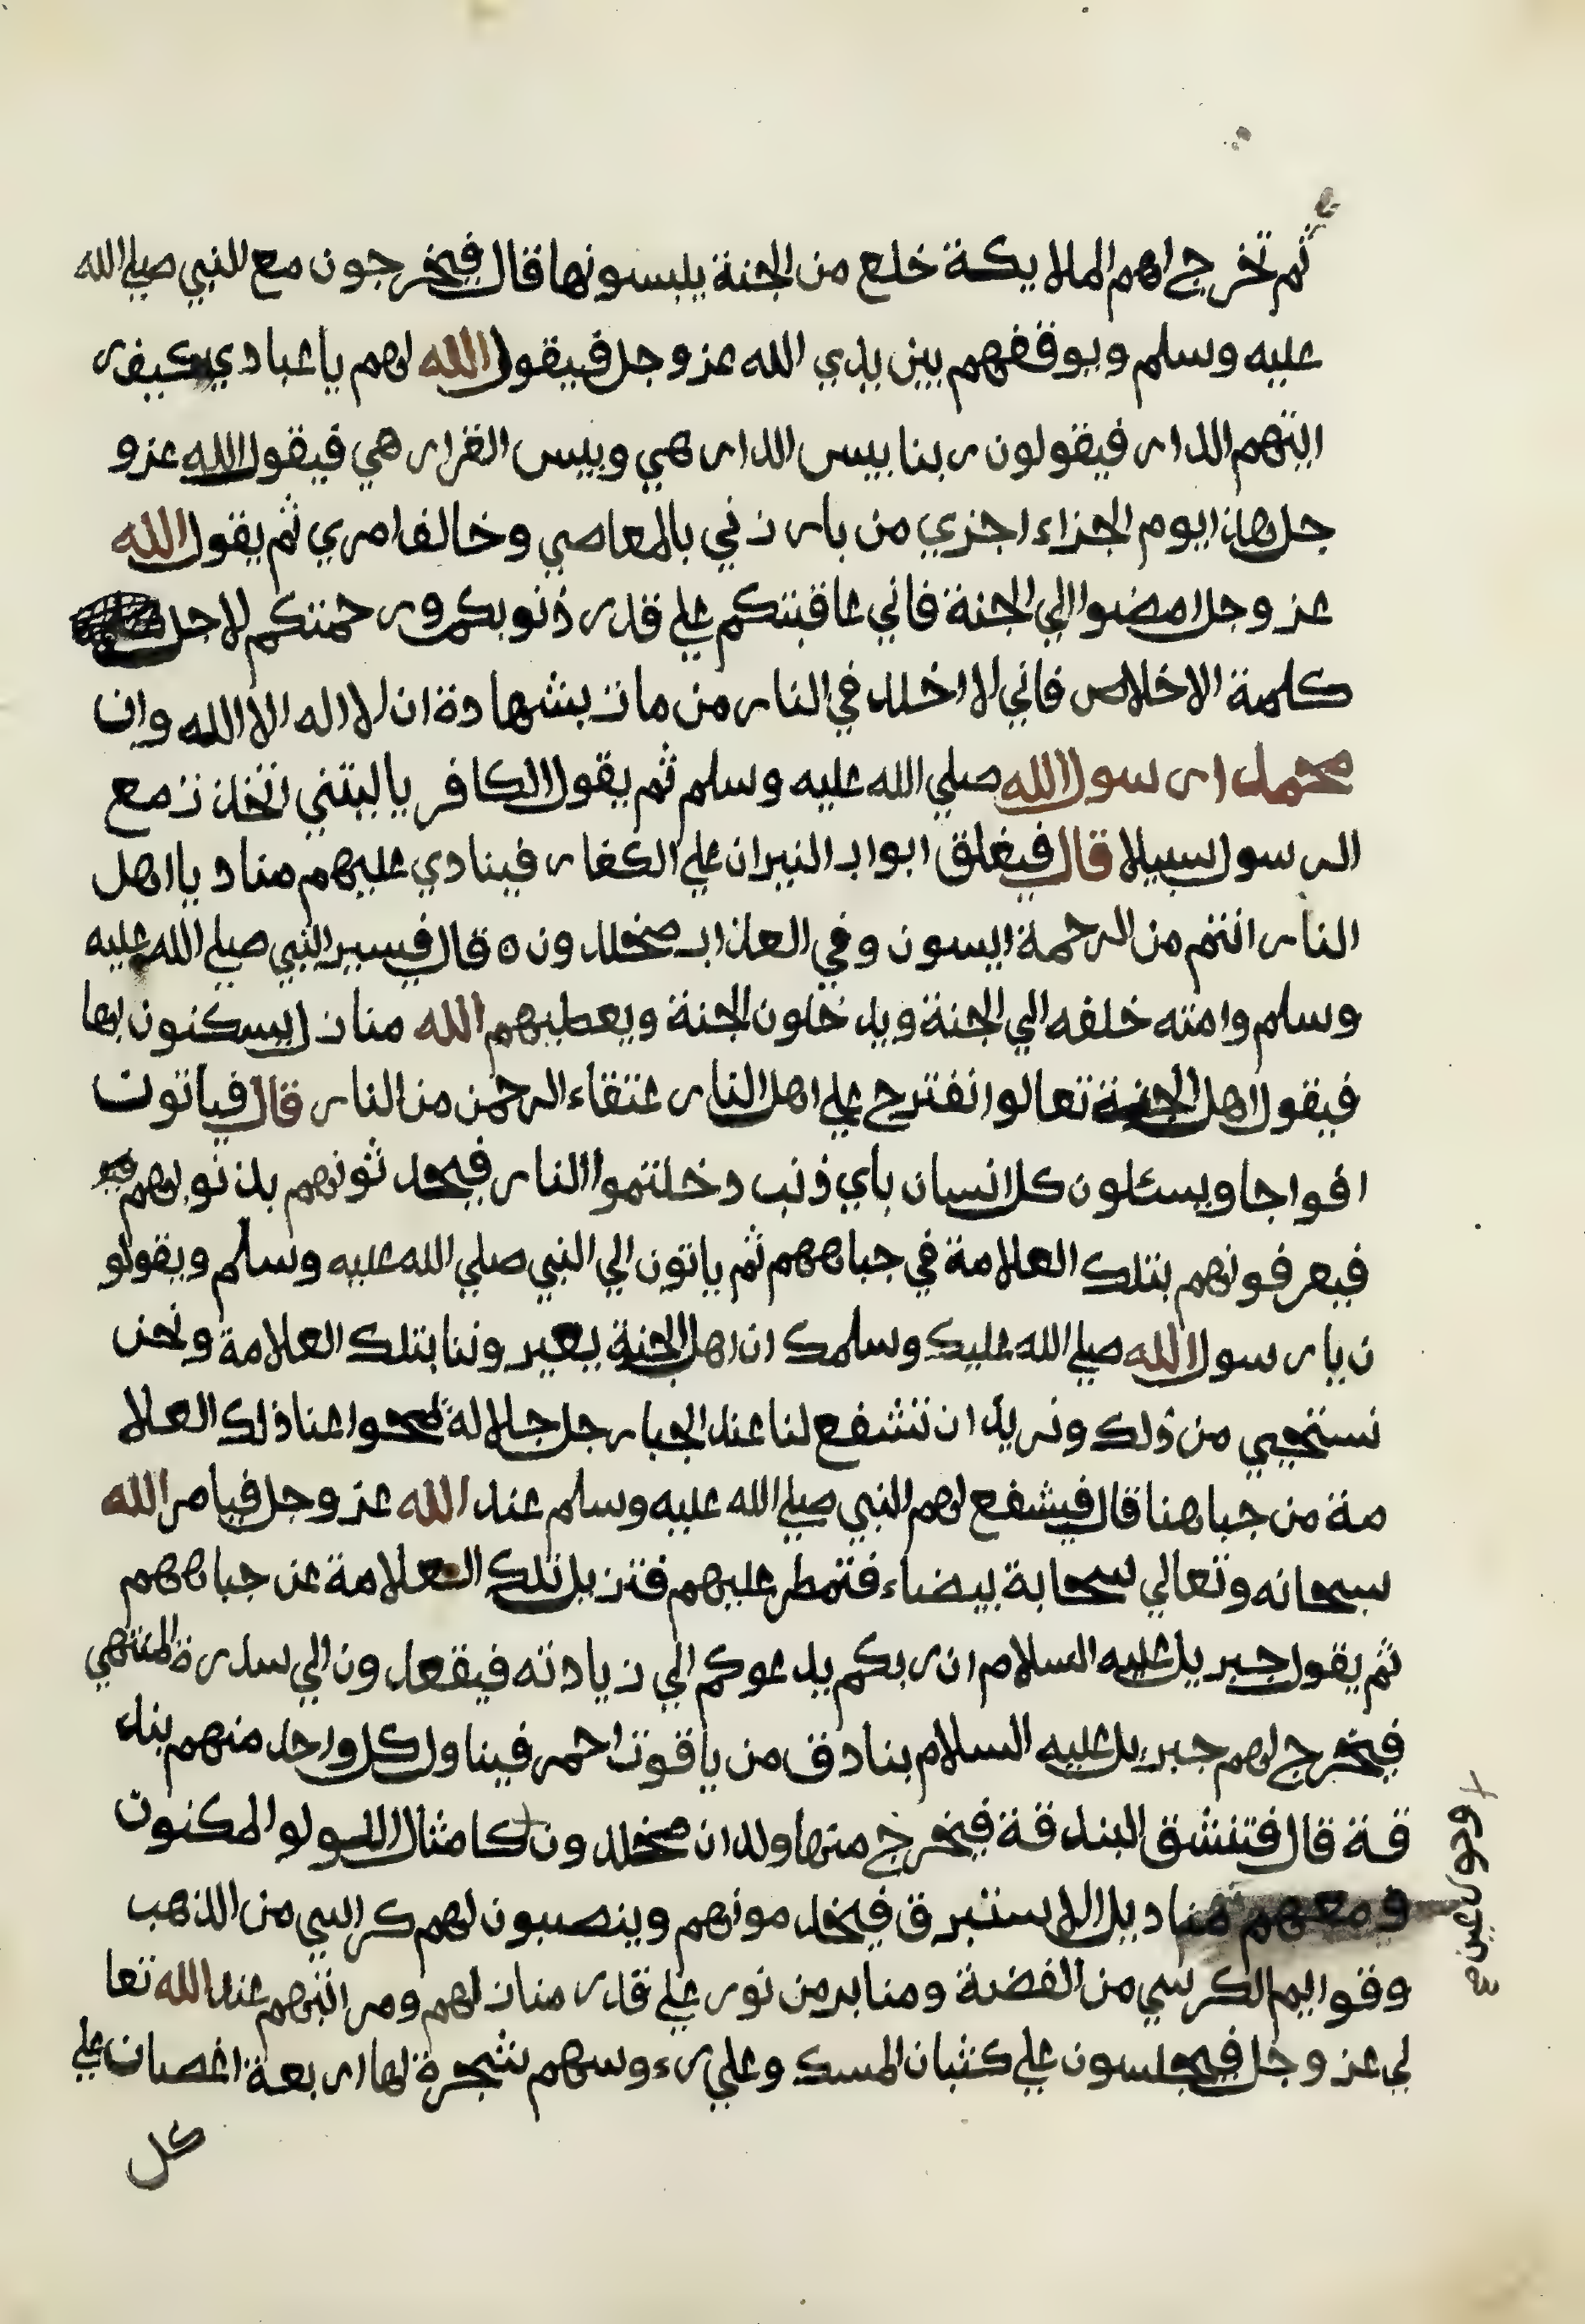 ثم تخرج لهم الملايكة خلع من الجنة يلبسونها قال فيخرجون مع النبي صلي الله
عليه وسلم ويوقفهم بين يدي الله عز وجل فيقول الله لهم يا عبادي كيف ر
ايتهم الدار فيقولون ربنا بيس الدار هي وبيس القرار هي فيقول الله عز و
جل هذا يوم الجزاء اجزي من بارزني بالمعاصي وخالف امري ثم يقول الله
عز وجل امضوا الي الجنة فاني عاقبتكم علي قدر ذنوبكم ورحمتكم لاجل
كلمة الاخلاص فاني لا اخلد في النار من مات بشهادة ان لا اله الا الله وان
محمدا رسول الله صلي الله عليه وسلم ثم يقول الكافر يا ليتني اتخذت مع
الرسول سبيلا قال فيغلق ابواب النيران علي الكفار فينادي عليهم مناد يا اهل
النار انتم من الرحمة ايسون وفي العذاب مخلدون ه قال فيسير النبي صلي الله عليه
وسلم وامته خلفه الي الجنة ويدخلون الجنة ويعطيهم الله منازل يسكنون بها
فيقول اهل الجنة تعالوا نفترج علي اهل النار عتقاء الرحمن من النار قال فياتون
افواجا ويسئلون كل انسان باي ذنب دخلتموا النار فيحدثونهم بذنوبهم
فيعرفونهم بتلك العلامة في جباههم ثم ياتون الي النبي صلي الله عليه وسلم ويقولو
ن يا رسول الله صلي الله عليك وسلمك ان اهل الجنة يعيروننا بتلك العلامة ونحن
نستحيي من ذلك ونريد ان تشفع لنا عند الجبار جل جلاله يمحوا عنا ذلك العلا
مة من جباهنا قال فيشفع لهم النبي صلي الله عليه وسلم عند الله عز وجل فيامر الله
سبحانه وتعالي سحابة بيضاء فتمطر عليهم فتزيل تلك العلامة عن جباههم
ثم يقول جبريل عليه السلام ان ربكم يدعوكم الي زيادته فيقعدون الي سدرة المنتهي
فيخرج لهم جبريل عليه السلام بنادق من ياقوت احمر فيناول كل واحد منهم بند
قة قال فتنشق البندقة فيخرج منها ولدان مخلدون كامثال اللولو المكنون
وحور عين ع
ومعهم مناديل الاستبرق فيخدمونهم وينصبون لهم كراسي من الذهب
وقوايم الكرسي من الفضة ومنابر من نور علي قدر منازلهم ومراتبهم عند الله تعا
لي عز وجل فيجلسون علي كثبان المسك وعلي رءوسهم شجرة لها اربعة اغصان علي
كل